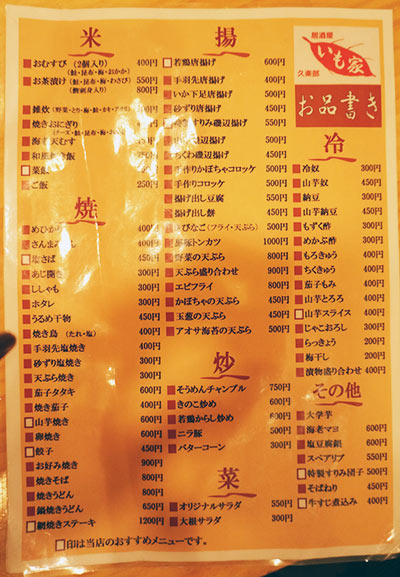 居酒屋
いも家
久楽部
お品書き
米
おむすび (2個入り) 400円
(鮭・昆布・梅・おかか)
お茶漬け 550円
(鮭・昆布・梅・わさび)
800円
(鯛刺身入り)
雑炊
焼きおにぎり
ご飯 250円
焼
あじ開き
ししゃも 300円
ホタレ
うるめ干物 450円
焼き鳥 (たれ・塩) 400円
手羽先塩焼き
砂ずり塩焼き
天ぷら焼き 300円
茄子タタキ 600円
焼き茄子 400円
山芋焼き 600円
卵焼き 600円
餃子 450円
お好み焼き 900円
焼きそば 800円
焼きうどん 800円
鍋焼きうどん 650円
鯛焼きステーキ 1200円
揚
若鶏唐揚げ 600円
手羽先唐揚げ 400円
いか下足唐揚げ 500円
砂ずり唐揚げ 450円
すりみ磯辺揚げ 550円
磯辺揚げ 550円
ちくわ磯辺揚げ 450円
手作りかぼちゃコロッケ 500円
手作りコロッケ 500円
揚げ出し豆腐 550円
揚げ出し餅 450円
きびなご (フライ・天ぷら) 500円
トンカツ 1000円
野菜の天ぷら 800円
天ぷら盛り合わせ 900円
エビフライ 800円
かぼちゃの天ぷら 450円
玉葱の天ぷら 450円
アオサ海苔の天ぷら 500円
炒
そうめんチャンプル 750円
きのこ炒め 600円
若鶏からし炒め 600円
ニラ豚 500円
バターコーン 300円
菜
オリジナルサラダ 550円
大根サラダ 300円
冷
冷奴 300円
山芋奴 450円
納豆 300円
山芋納豆 400円
もずく酢 300円
めかぶ酢 300円
もろきゅう 300円
ちくきゅう 300円
茄子もみ 400円
山芋とろろ 400円
山芋スライス 400円
じゃこおろし 300円
らっきょう 200円
梅干し 200円
漬物盛り合わせ 400円
その他
大学芋
海老マヨ 600円
塩豆腐鍋 600円
スペアリブ 550円
特製すりみ団子 500円
そばねり 450円
牛すじ煮込み 400円
□印は当店のおすすめメニューです。